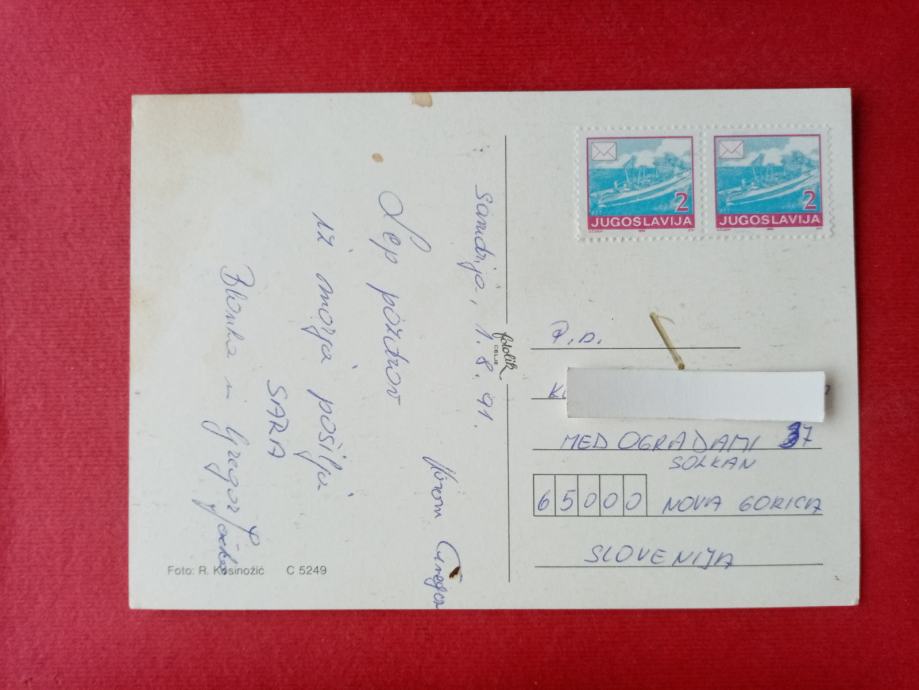 Savudrija, 1.8.91.
Lep pozdrav
iz morja pošilja
SARA
Blanka in Gregor
Foto: R. Kosinožić C 5249
fotolik
CELJE
2
JUGOSLAVIJA
2
JUGOSLAVIJA
P.D.
MED OGRADAMI 37
SOLKAN
65000 NOVA GORICA
SLOVENIJA